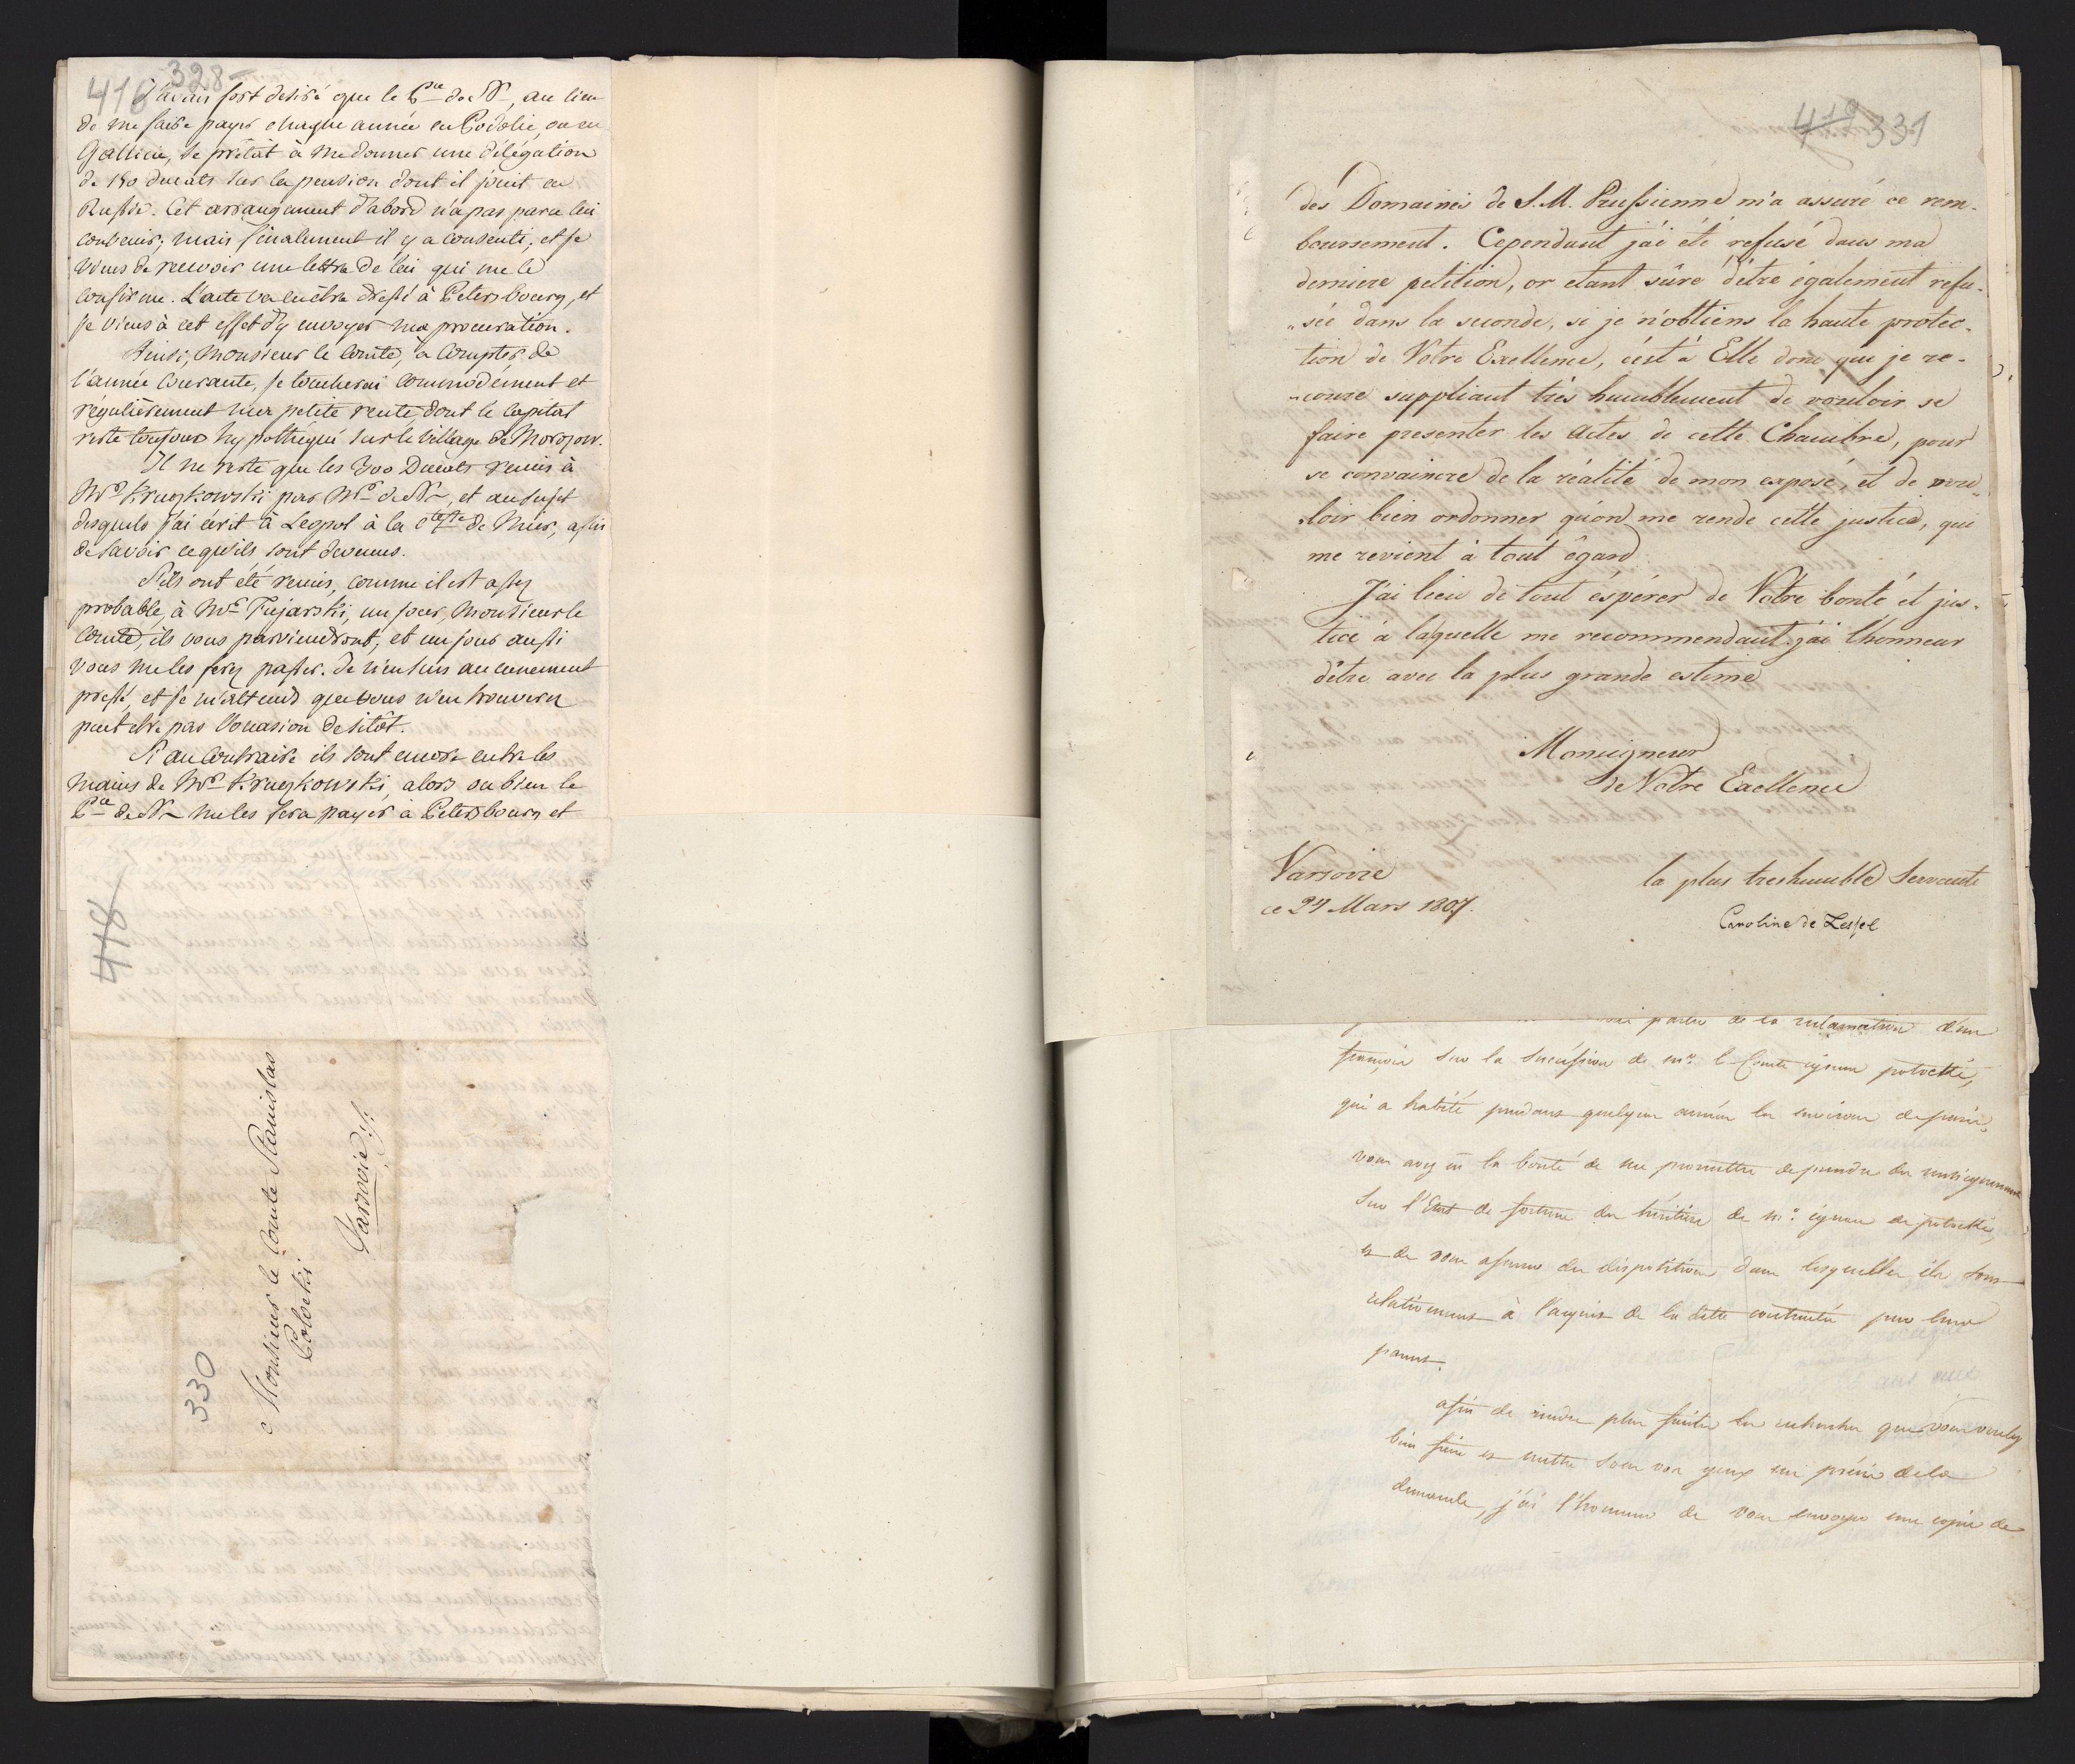 416 328
J'avais fort desiré que le Pce de N~, au lieu
de me faire payer chaque année en Podolie, ou en
Gallicie, se prêtât à me donner une délégation
de 150 ducats sur la pension dont il jouit en
Russie. Cet arrangement d'abord n'a pas paru lui
convenir; mais finalement il y a consenti; et je
viens de recevoir une lettre de lui qui me le
confirme. L'acte va en être dressé à Petersbourg, et
je viens à cet effet d'y envoyer ma procuration.
Ainsi, Monsieur le Comte, à compter de
l'année courante, je toucherai commodément et
régulièrement ma petite rente dont le capital
reste toujours hypothéqué sur le village de Morozow.
Il ne reste que les 300 Ducats remis à
Mr Kruszkowski par Mr de N~, et au sujet
desquels j'ai écrit à Leopol à la Ctesse de Mier, afin
de savoir ce qu'ils sont devenus.
S'ils ont été remis, comme il est assez
probable, à Mr Fujarski, un jour, Monsieur le
Comte, ils vous parviendront, et un jour aussi
vous me les ferez passer. Je n'en suis aucunement
pressé, et je m'attends que vous n'en trouverez
peut etre pas l'occasion de sitôt.
Si au contraire ils sont encore entre les
mains de Mr Kruszkowski, alors ou bien le
Pce de N~ me les fera payer à Petersbourg et
418
330
à Monsieur le Comte Stanislas
Potocki
Varsovie
419 331
des Domaines de S. M. Prussienne m'a assuré ce rem-
boursement. Cependant j'ai été refusé dans ma
derniere petition, or etant sûre d'être également refu-
sée dans la seconde, si je n'obtiens la haute protec-
tion de Votre Exellence, c'est à Elle donc que je re-
coure suppliant très humblement de vouloir se
faire presenter les Actes de cette Chambre, pour
se convaincre de la réalité de mon exposé, et de vou-
loir bien ordonner qu'on me rende cette justice, qui
me revient à tout égard
J'ai lieu de tout éspérer de Votre bonté et jus-
tice à laquelle me recommendant j'ai l'honneur
d'être avec la plus grande estime
Monseigneur
de Votre Exellence
Varsovie
ce 24 Mars 1807.
la plus tres humble Servante
Caroline de Lessel
parler de la reclamation d'un
françois sur la succession de mr. le Comte ignace potocki,
qui a habité pendant quelques années les environs de paris.
vous avez eu la bonté de me promettre de prendre des renseignements
sur l'Etat de fortune des héritiers de mr. ignace de potocki,
et de vous assurer des dispositions dans lesquelles ils sont
relativement à l'acquit de la dette contractée par leur
parent.
afin de rendre plus faciles les recherches que vous voulez
bien faire et mettre sous vos yeux un précis de la
demande, j'ai l'honneur de vous envoyer une copie de